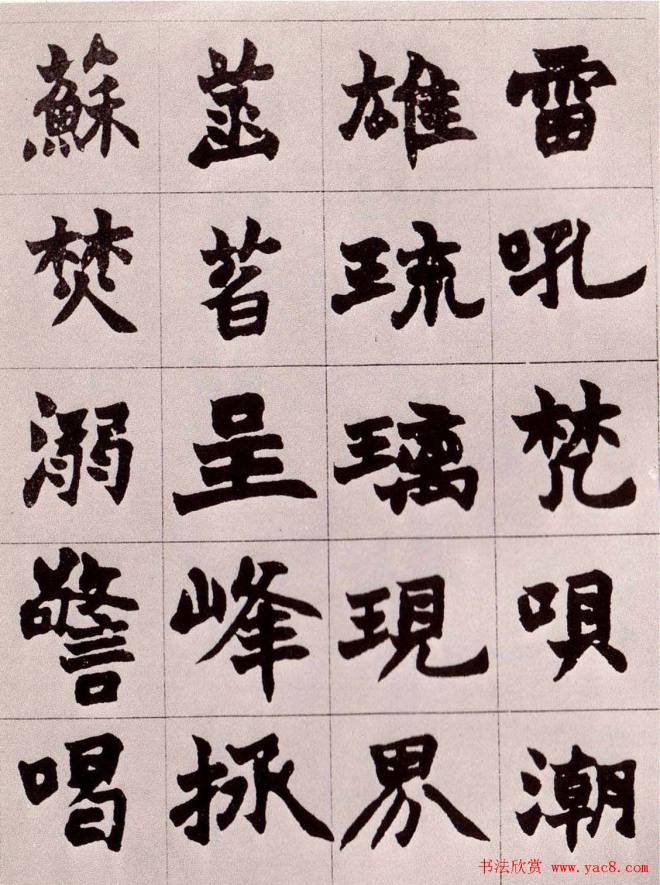 雷吼梵唄潮
雄琉璃現界
菡萏呈峰拯
蘇焚溺警喝
书法欣赏 www.yac8.com